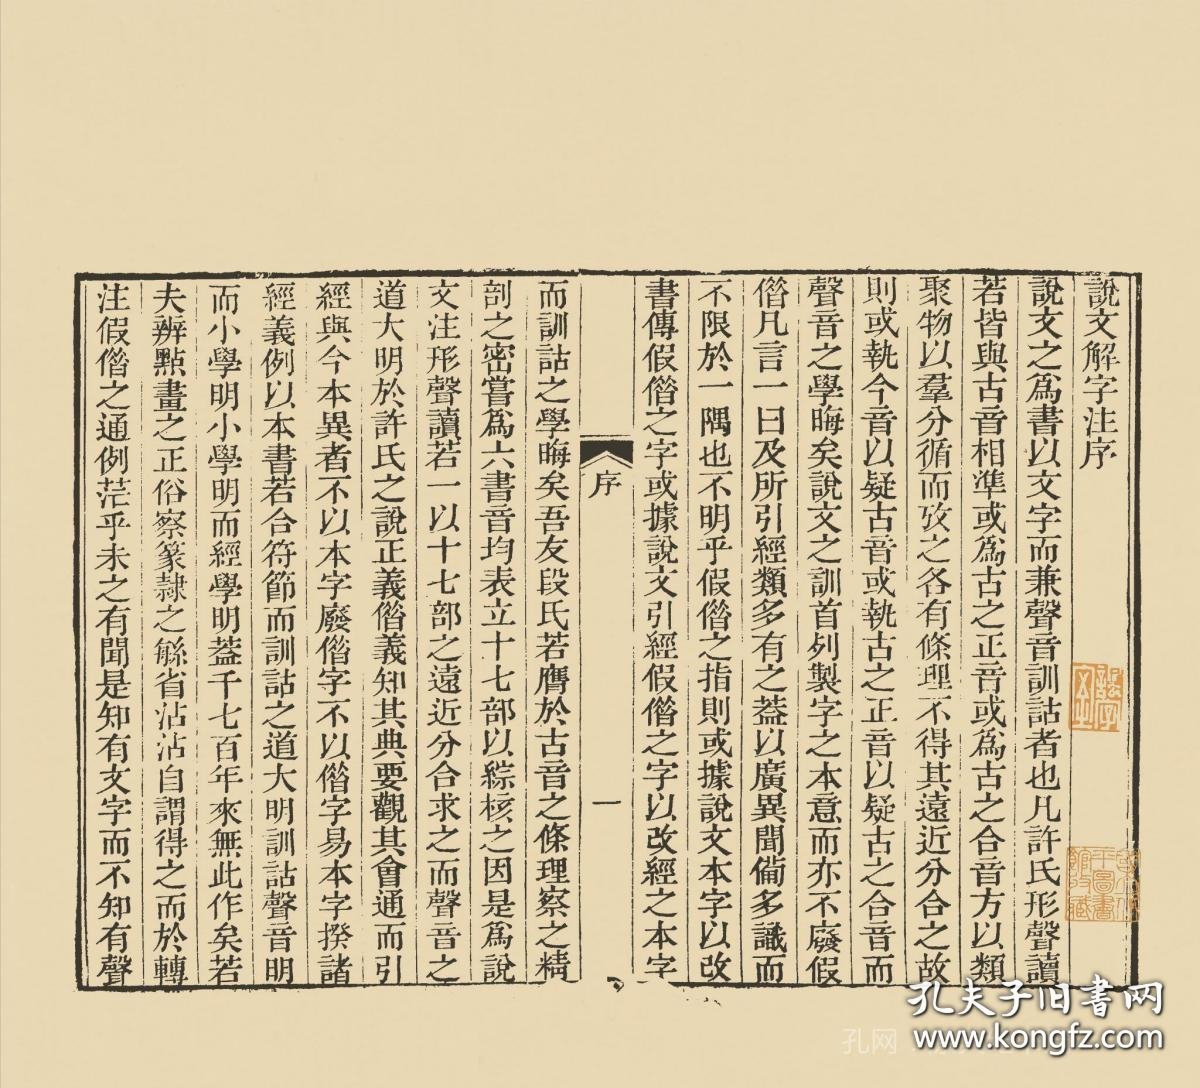 說文解字注序
說文之爲書以文字而兼聲音訓詁者也凡許氏形聲讀
若皆與古音相準或爲古之正音或爲古之合音方以類
聚物以羣分循而攷之各有條理不得其遠近分合之故
則或執今音以疑古音或執古之正音以疑古之合音而
聲音之學晦矣說文之訓首列製字之本意而亦不廢假
僭凡言一曰及所引經類多有之葢以廣異聞僃多識而
不限於一隅也不明乎假僭之指則或據說文本字以改
書傳假僭之字或據說文引經假僭之字以改經之本字
序
一
而訓詁之學晦矣吾友段氏若膺於古音之條理察之精
剖之密嘗爲六書音均表立十七部以綜核之因是爲說
文注形聲讀若一以十七部之遠近分合求之而聲音之
道大明於許氏之說正義僭義知其典要觀其會通而引
經與今本異者不以本字廢僭字不以僭字易本字揆諸
經義例以本書若合符節而訓詁之道大明訓詁聲音明
而小學明小學明而經學明葢千七百年來無此作矣若
夫辨點畫之正俗察篆隸之緐省沾沾自謂得之而於轉
注假僭之通例茫乎未之有聞是知有文字而不知有聲
孔夫子旧书网
www.kongfz.com